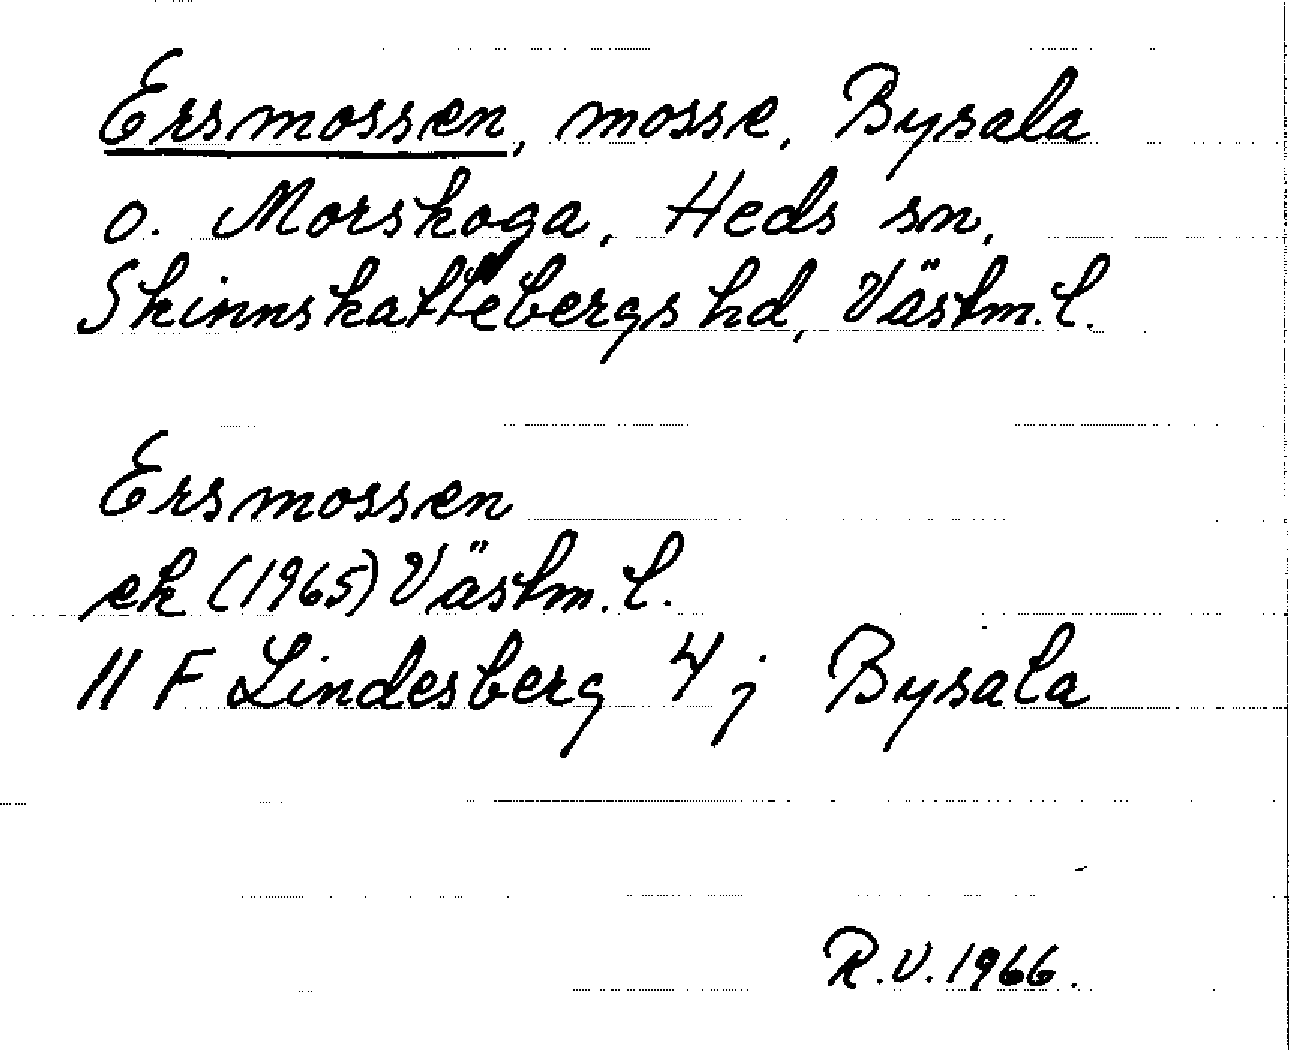 Ersmossen, mosse, Bysala
o. Morskoga, Heds sn,
Skinnskattebergs hd, Västm. l.
Ersmossen
ek (1965) Västm. l.
11 F Lindesberg 4 j Bysala
R.V. 1966.